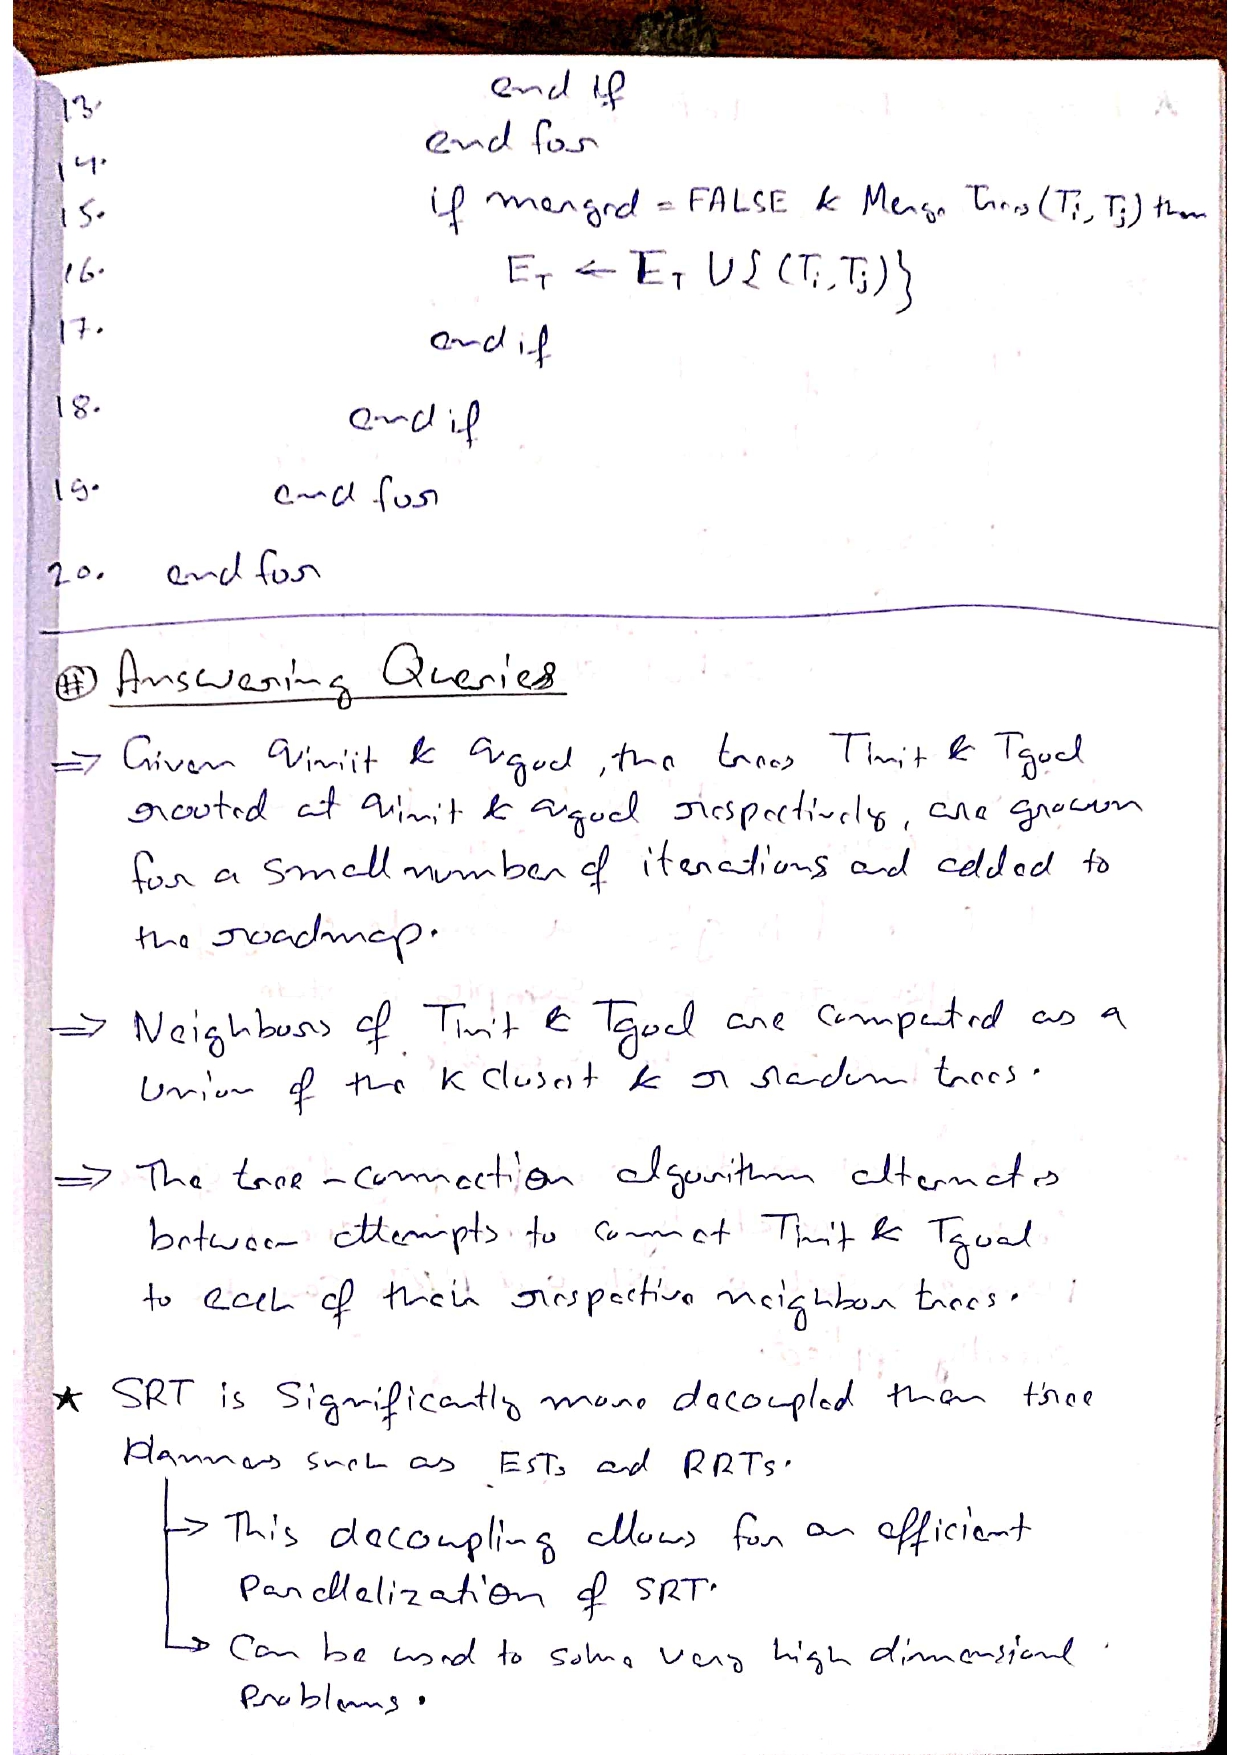 13. end if
14. end for
15. if merged = FALSE & Merge Trees (Ti, Tj) then
16. ET ← ET ∪ {(Ti, Tj)}
17. end if
18. end if
19. end for
20. end for
# Answering Queries
⇒ Given qinit & qgoal, the trees Tinit & Tgoal
rooted at qinit & qgoal respectively, are grown
for a small number of iterations and added to
the roadmap.
⇒ Neighbors of Tinit & Tgoal are computed as a
union of the K closest & r random trees.
⇒ The tree-connection algorithm alternates
between attempts to connect Tinit & Tgoal
to each of their respective neighbor trees.
★ SRT is significantly more decoupled than tree
planners such as ESTs and RRTs.
→ This decoupling allows for an efficient
Parallelization of SRT.
→ Can be used to solve very high dimensional
Problems.